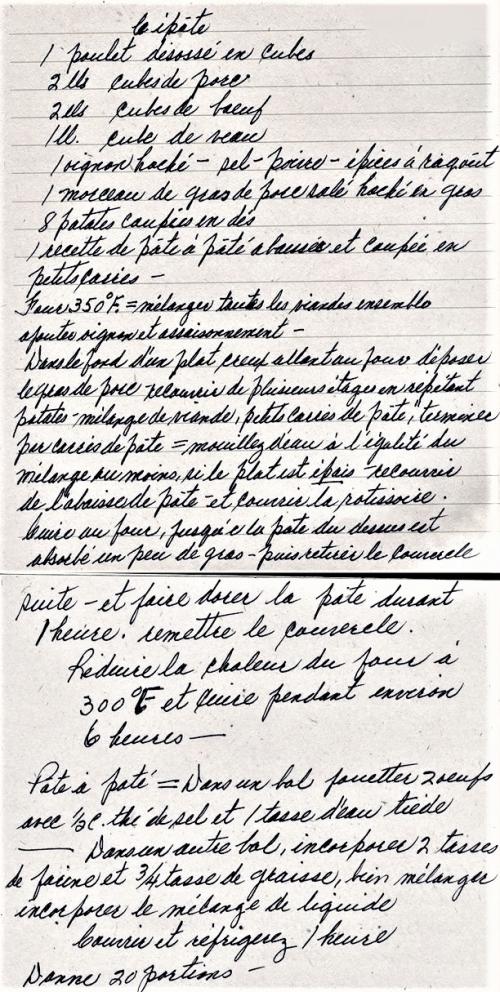 Cipâte
1 poulet désossé en cubes
2 lls cubes de porc
2 lls cubes de boeuf
1 ll. cube de veau
1 oignon haché - sel - poivre - épices à ragoût
1 morceau de gras de porc salé haché en gros
8 patates coupées en dés
1 recette de pâte à pâté abaissée et coupée en
petits carrés -
Four 350°F. = mélanger toutes les viandes ensemble
ajouter oignon et assaisonnement -
Dans le fond d'un plat creux allant au four déposer
le gras de porc recouvrir de plusieurs étages en répétant
patates - mélange de viande, petits carrés de pâte, terminer
par carrés de pâte = mouillez d'eau à l'égalité du
mélange ou moins, si le plat est épais - recouvrir
de l'abaisse de pâte - et couvrir la rotissoire.
Cuire au four, jusqu'à la pâte du dessus est
absorbé un peu de gras - puis retirer le couvercle
suite - et faire dorer la pâte durant
1 heure. remettre le couvercle.
Réduire la chaleur du four à
300°F et cuire pendant environ
6 heures -
Pâte à pâté = Dans un bol fouetter 2 oeufs
avec ½ c. thé de sel et 1 tasse d'eau tiède
- Dans un autre bol, incorporer 2 tasses
de farine et ¾ tasse de graisse, bien mélanger
incorporer le mélange de liquide
Couvrir et réfrigerez 1 heure
Donne 20 portions -